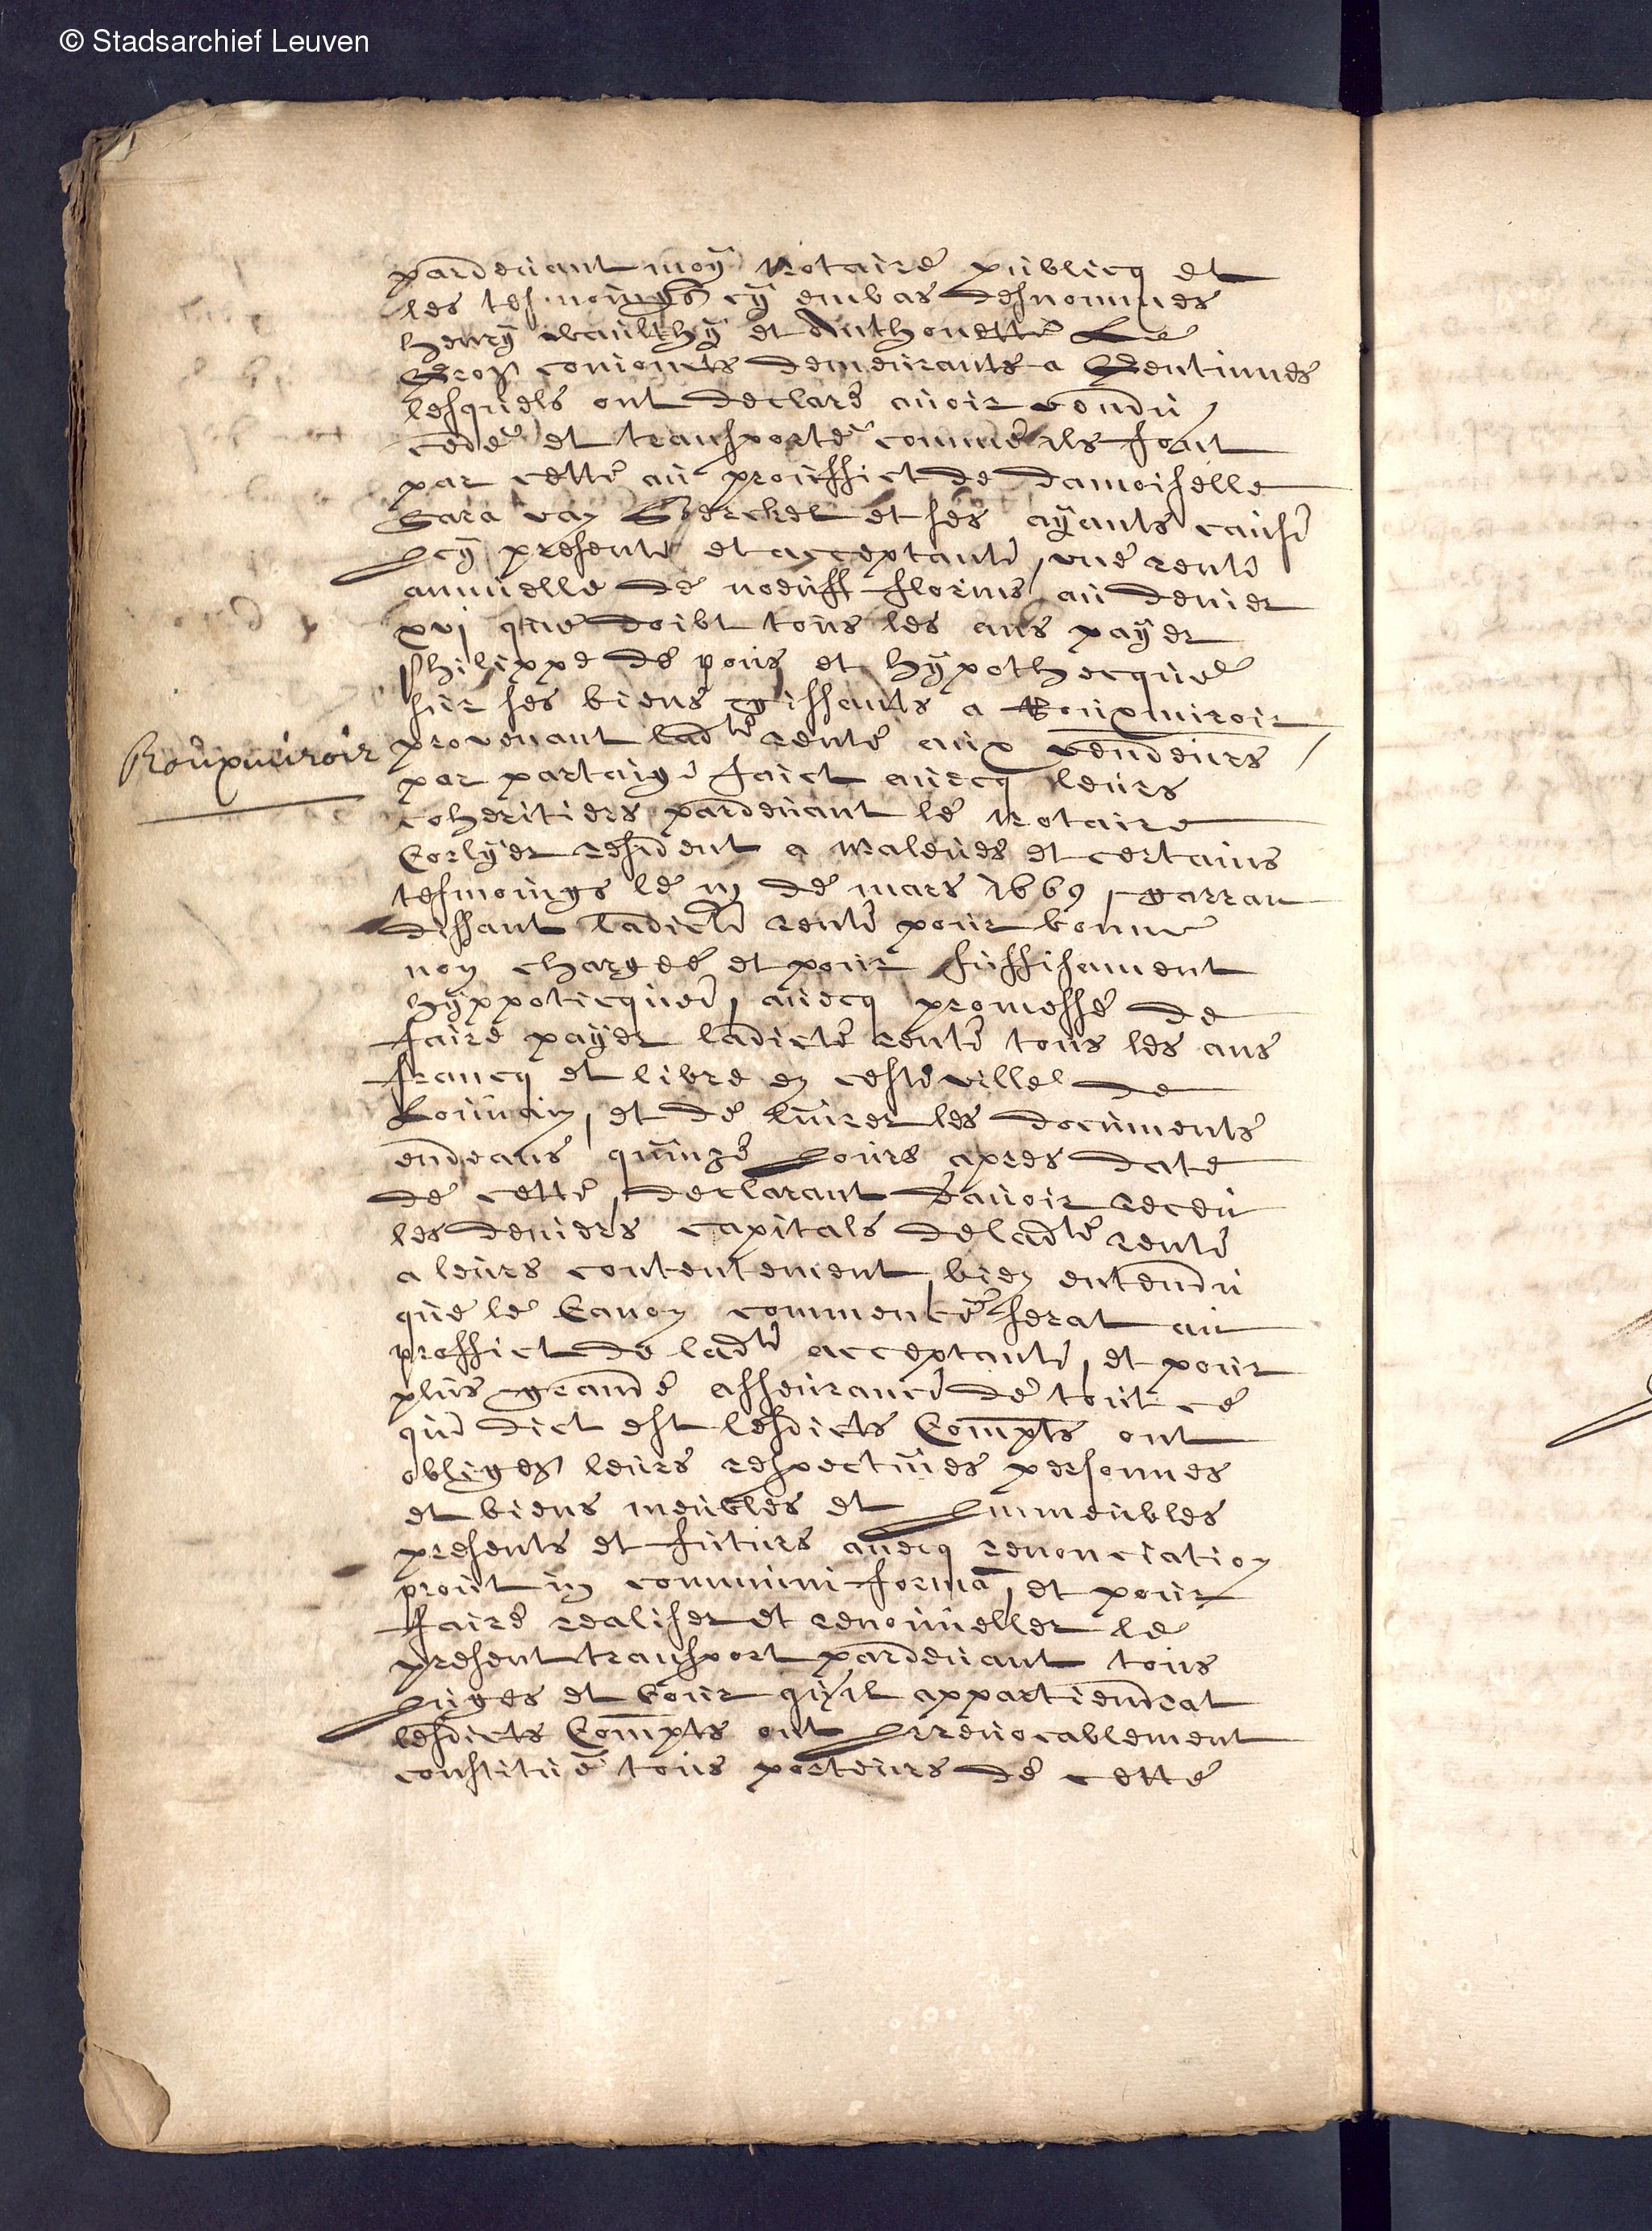 © Stadsarchief Leuven
pardeuant moÿ Notaire publicq et
les tesmoings cÿ embas desnommes
henrÿ waulthÿ et Anthonette Le
Gros conioincts demeurants a Gentinnes
lesquels ont declaré auoir vendu
cedé et transporté comme ils font
par cette au prouffict de damoiselle
Sara van Goerckel et ses aÿants cause
Icÿ presente et acceptante, une rente
annuelle de noeuff florins au denier
xvj que doibt tous les ans paÿer
Philippe de pous et hÿpothecquée
sur ses biens gissants a Rouxmiroir
Rouxmiroir
provenant ladte rente aux vendeurs
par partaige faict auecq leurs
coheritiers pardeuant le Notaire
Corlÿer resident a Maleues et certains
tesmoings le iij de mars 1669, garran
dissant ladicte rente pour bonne
non chargée et pour suffisament
hÿppoticquée, auecq promesse de
faire paÿer ladicte rente tous les ans
francq et libre en ceste ville de
Louuain, et de liurer les documents
endeans quinze Jours apres date
de cette, declarant d'auoir receu
les deniers capitals de ladte rente
a leurs contentement, bien entendu
que le Canon commencé serat au
proffict de ladte acceptante, et pour
plus grande asseurance de tout ce
que dict est lesdicts Compts ont
obligez leurs respectiues personnes
et biens meubles et Immeubles
presents et futurs auecq renonciation
prout in communi forma, et pour
faire realiser et renouueller le
present transport pardeuant tous
Juges et Cour qu'il appartiendrat
lesdicts Compts ont Irreuocablement
constitué tous porteurs de cette